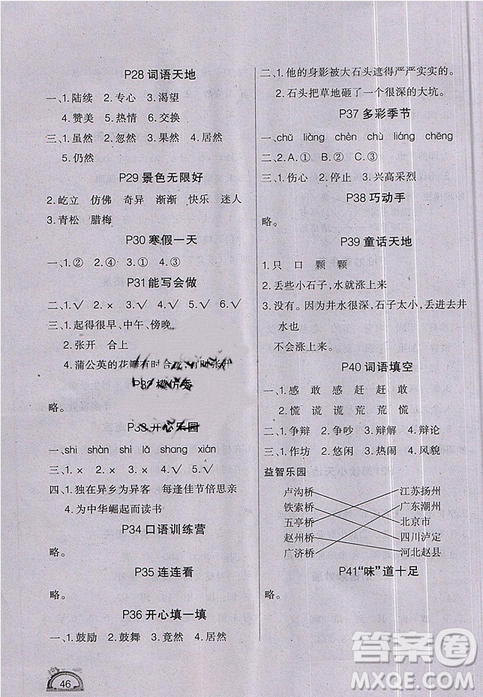 P28 词语天地
一、1. 陆续 2. 专心 3. 渴望
4. 赞美 5. 热情 6. 交换
三、1. 虽然 2. 忽然 3. 果然 4. 居然
5. 仍然
P29 景色无限好
2. 屹立 仿佛 奇异 渐渐 快乐 迷人
3. 青松 腊梅
P30 寒假一天
一、1. ② 2. ④ 3. ① 4. ③
P31 能写会做
一、1. √ 2. × 3. √ 4. √ 5. √
二、1. 起得很早、中午、傍晚。
2. 张开 合上
4. 蒲公英的花
略。
一、shi shàn shì lā shang xián
三、1. √ 2. × 3. √ 4. √
四、1. 独在异乡为异客 每逢佳节倍思亲
2. 为中华崛起而读书
P34 口语训练营
略。
P35 连连看
略。
P36 开心填一填
一、1. 鼓励 2. 鼓舞 3. 竟然 4. 居然
46
二、1. 他的身影被大石头遮得严严实实的。
2. 石头把草地砸了一个很深的大坑。
P37 多彩季节
一、chū liàng chèn chù liáng chēng
二、2. A. ① B. ② C. ③ D. ④
三、1. 伤心 2. 停止 3. 兴高采烈
P38 巧动手
略。
P39 童话天地
1. 只 口 颗 颗
2. 丢些小石子,水就涨上来了。
3. 没有。因为井水很深,石子太小,丢进
井水也
不会涨上来。
P40 词语填空
一、1. 感 敢 感 赶 赶 敢
2. 慌 谎 谎 慌 荒 荒
二、1. 争辩 2. 争论 3. 辩解 4. 辩论
三、1. 作坊 2. 规模 3. 热闹 4. 风貌
益智乐园
卢沟桥 江苏扬州
铁索桥 广东潮州
五亭桥 北京市
赵州桥 四川泸定
广济桥 河北赵县
P41 “味”道十足
略。
答案圈
MXQE.COM